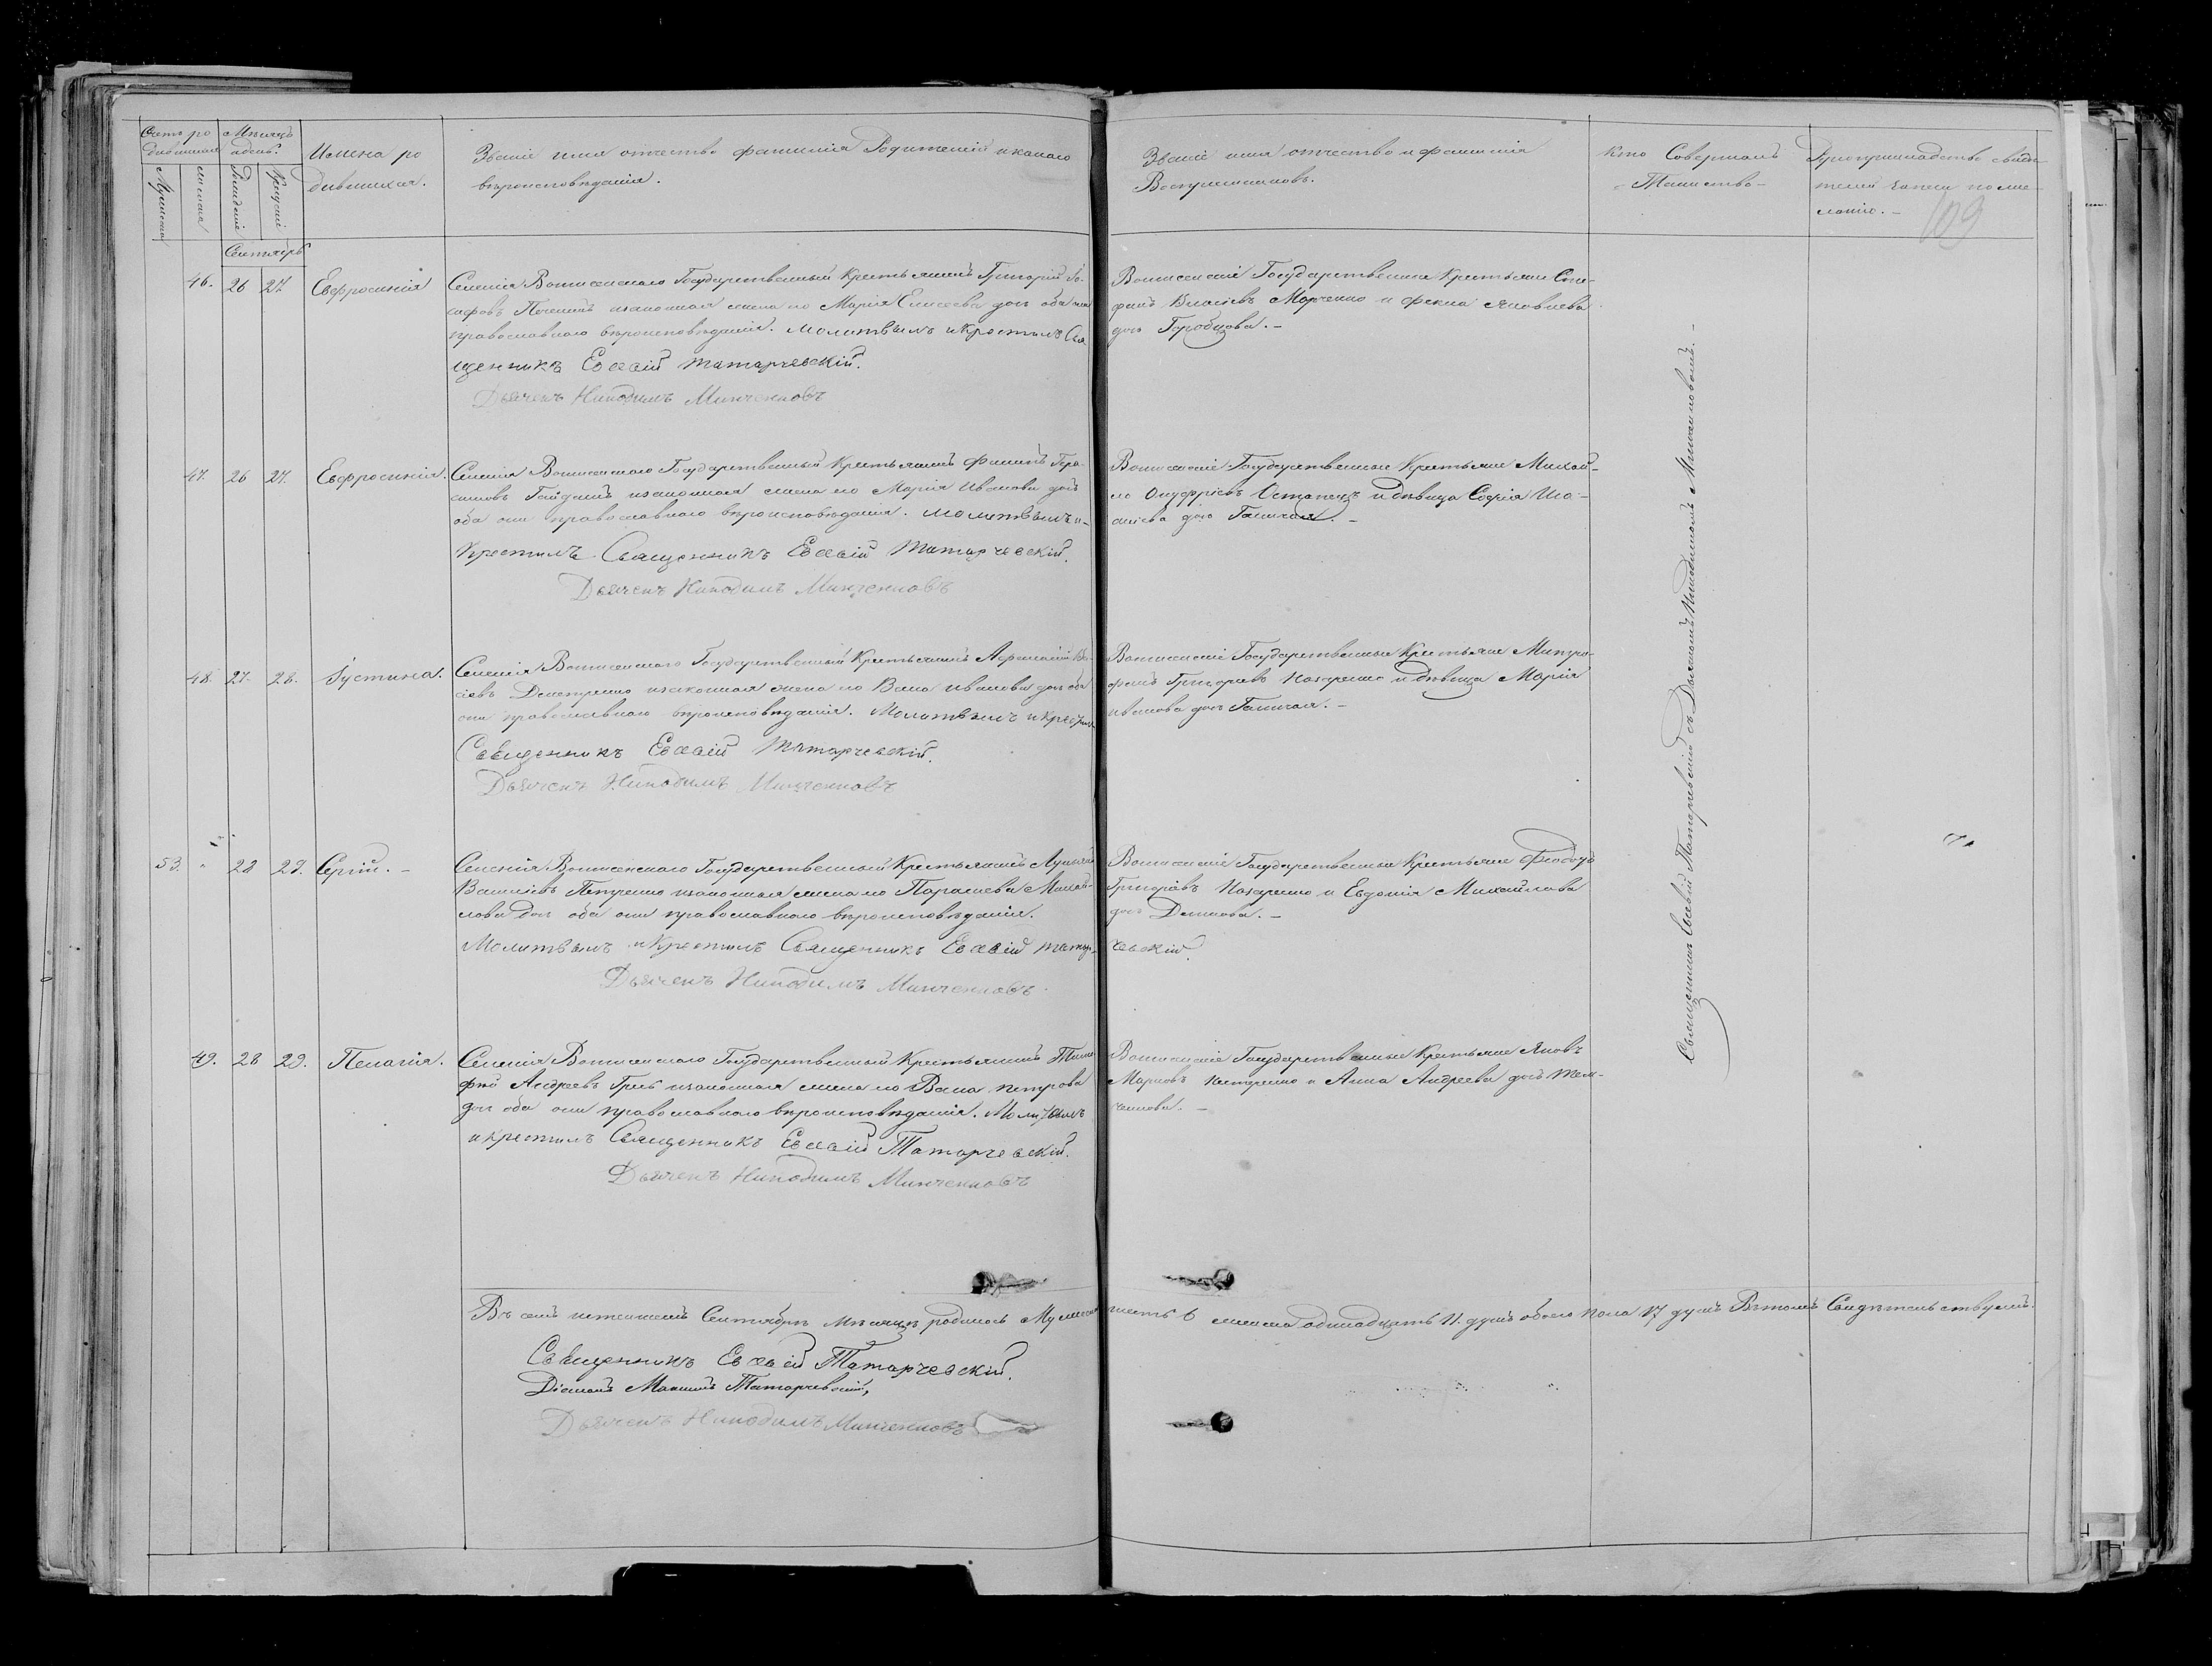 Счетъ ро
дившихся
Мѣсяцъ
и день.
Имена ро
дившихся.
Званіе имя отчество фамилія Родителей и какаго
вѣроисповѣданія.
Званіе имя отчество и фамилія
Воспреемниковъ.
Кто Совершалъ
Таинство
Рукоприкладство свидѣ-
телей записи по же-
ланію. –
109
Мужеска
женска
Рожденія
Крещенія
Сентябрь
46. 26 27 Евфросинія
Селенія Государственный Крестьянинъ Григорій
законная жена его Марія Елисеева дочь оба они
православнаго вѣроисповѣданія. Молитвилъ и Крестилъ Свя-
щенникъ Евсевій Татарчевскій.
Дьячекъ Никодимъ Минченковъ
Государственные Крестьяне Сте-
фанъ Власіевъ Марченко и Фекла Яковлева
дочь Горобцова. –
47. 26 27. Евфросинія.
Селенія Государственный Крестьянинъ Филипъ Гера-
симовъ Гайдашъ законная жена его Марія Иванова дочь
оба они православнаго вѣроисповѣданія. Молитвилъ и
Крестилъ Священникъ Евсевій Татарчевскій.
Дьячекъ Никодимъ Минченковъ
Государственные Крестьяне Михай-
ло Онуфріевъ Остапецъ и дѣвица Софія
дочь
48. 27. 28. Іустина.
Селенія Государственный Крестьянинъ Афанасій
законная жена его Васса Иванова дочь оба
они православнаго вѣроисповѣданія. Молитвилъ и Крестилъ
Священникъ Евсевій Татарчевскій.
Дьячекъ Никодимъ Минченковъ
Государственные Крестьяне Митро-
фанъ Григорьевъ Назаренко и дѣвица Марія
Иванова дочь
53. " 28 29. Сергій. –
Селенія Государственный Крестьянинъ Лукьянъ
законная жена его Параскева Михай-
лова дочь оба они православнаго вѣроисповѣданія.
Молитвилъ и Крестилъ Священникъ Евсевій Татар-
чевскій.
Дьячекъ Никодимъ Минченковъ
Государственные Крестьяне Феодоръ
Григоріевъ Назаренко и Евдокія Михайлова
дочь
49. 28 29. Пелагія.
Селенія Государственный Крестьянинъ Тимо-
фей Андреевъ законная жена его Васса Петрова
дочь оба они православнаго вѣроисповѣданія. Молитвилъ
и Крестилъ Священникъ Евсевій Татарчевскій.
Дьячекъ Никодимъ Минченковъ
Государственные Крестьяне Яковъ
Марковъ Нестеренко и Анна Андреева дочь
Священникъ Евсевій Татарчевскій съ Дьячкомъ Никодимомъ Минченковымъ. –
Въ семъ истекшемъ Сентябрѣ Мѣсяцѣ родилось Мужеска шесть 6 женска одинадцать 11. душъ обоего пола 17 душъ Въ томъ Свидѣтельствуемъ.
Священникъ Евсевій Татарчевскій.
Діаконъ Татарчевскій,
Дьячекъ Никодимъ Минченковъ